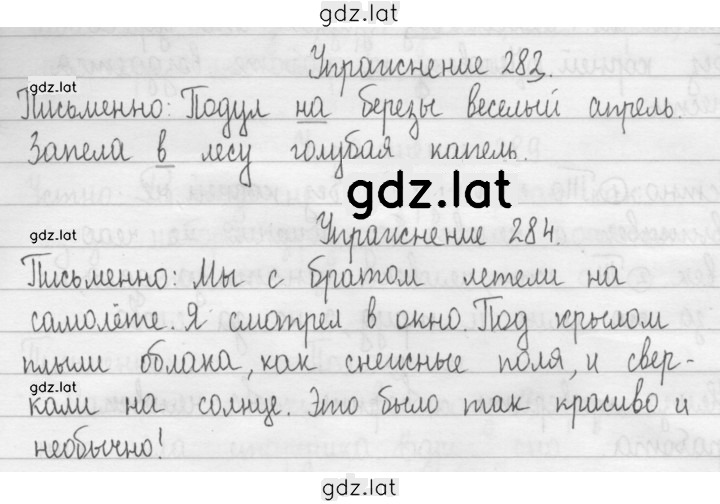 gdz.lat
Упражнение 283.
gdz.lat
Письменно: Подул на березы веселый апрель.
Запела в лесу голубая капель.
gdz.lat
Упражнение 284.
gdz.lat
Письменно: Мы с братом летели на
самолёте. Я смотрел в окно. Под крылом
плыли облака, как снежные поля, и свер-
gdz.lat
кали на солнце. Это было так красиво и
необычно!
gdz.lat